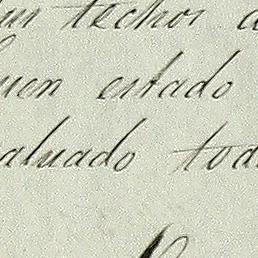 techos
uen estado
aluado tod